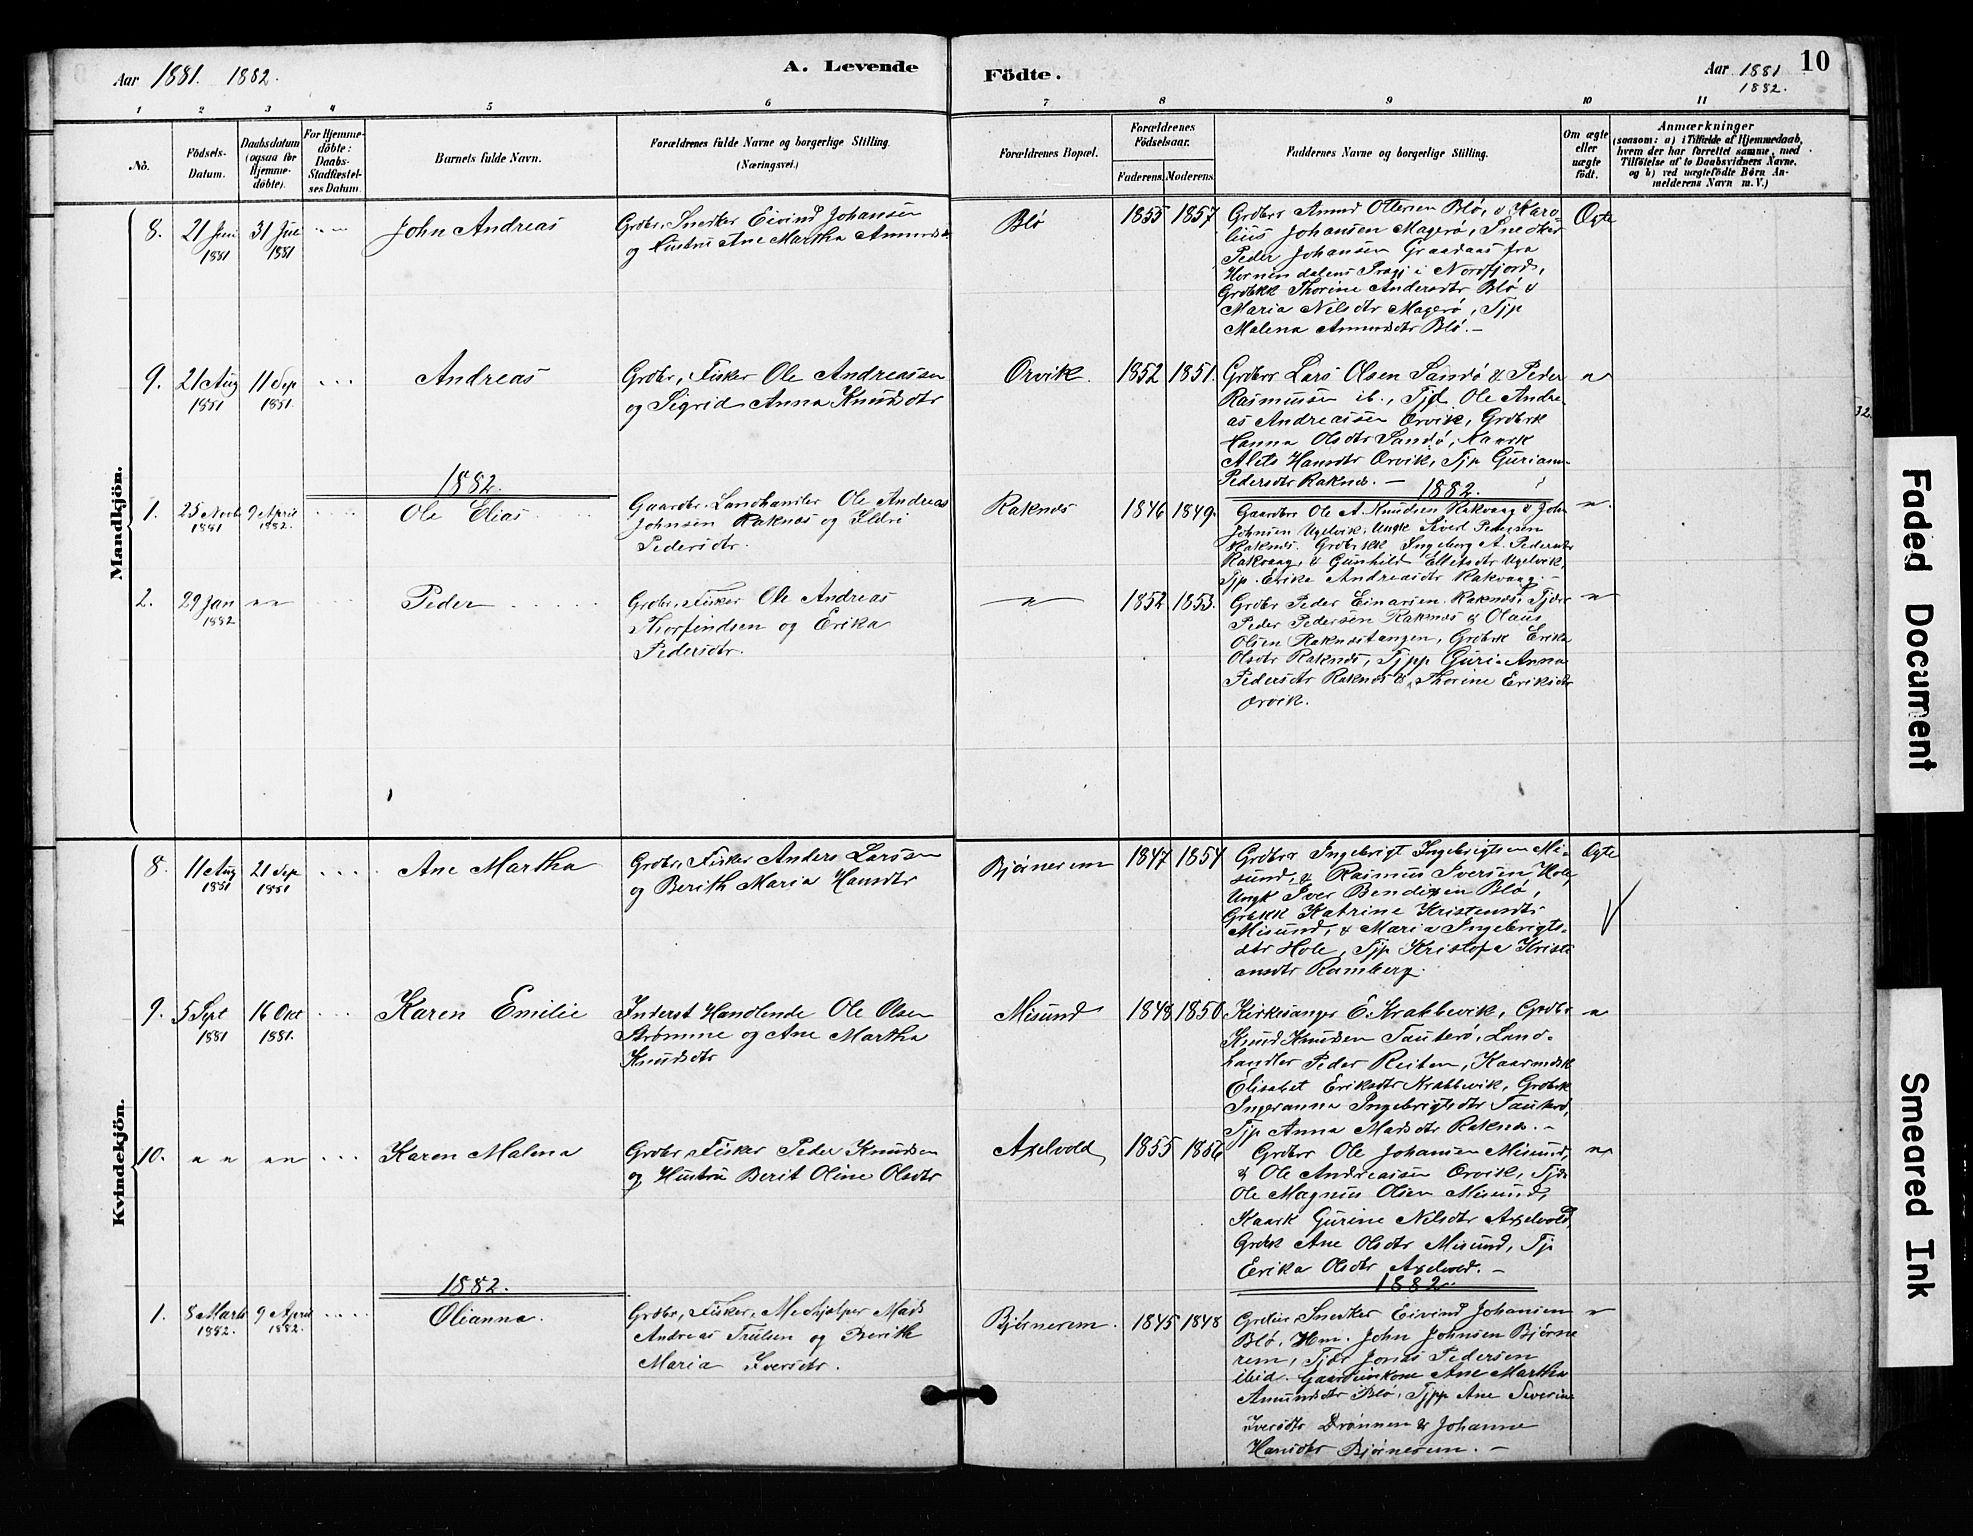 Aar 1881. 1882.
A. Levende
Födte.
Aar 1881
1882.
10
1 2 3 4 5 6 7 8 9 10 11
No.
Födsels-
Datum.
Daabsdatum
(ogsaa for
Hjemme-
døbte).
For Hjemme-
döbte:
Daabs-
Stadfæstel-
ses Datum.
Barnets fulde Navn.
Forældrenes fulde Navne og borgerlige Stilling
(Næringsvei.)
Forældrenes Bopæl.
Forældrenes
Födselsaar.
Faderens. Moderens.
Faddernes Navne og borgerlige Stilling.
Om ægte
eller
uægte
födt.
Anmærkninger
(saasom: a) i Tilfælde af Hjemmedaab,
hvem der har forrettet samme, med
Tilföielse af to Daabsvidners Navne,
og b) ved uægtefödte Börn An-
melderens Navn m. V.)
Mandkjön.
8.
21 Juni
1881
31 Jul
1881
John Andreas
Grdbr, Snedker Eivind Johansen
og Hustru Ane Martha Amunds
Blø
1855
1857
Grdbrr Amund Ottersen Blø, & Karo-
lius Johansen Magerø, Snedker
Peder Johansen Graadaas fra
Hornindalens Præstgj i Nordfjord,
Grdbkk Thorine Andersdtr Blø &
Maria Nilsdtr Magerø, Tjp
Malena Amundsdtr Blø. -
Ægte
9.
21 Aug
1881
11 Sep
1881.
Andreas
Grdbr, Fisker Ole Andreassen
og Sigrid Anna Knudsdtr
Orvik.
1852
1851.
Grdbrr Lars Olsen Sandø & Peder
Rasmussen ib., Tjd Ole Andre-
as Andreassen Orvik, Grdbrk
Hanna Olsdtr Sandø, Kaark
Alets Hansdtr Orvik, Tjp Gurianna
Pedersdtr Raknes. -
"
1882.
1882.
1.
25 Novb
1881
9 April
1882.
Ole Elias
Gaardbr, Landhandler Ole Andreas
Johnsen Raknes og Ildri
Pedersdtr.
Raknes
1846
1849.
Gaardbr Ole A. Knudsen Rakvaag & John
Johnsen Ugelvik, Ungk Sivert Pedersen
Raknes. Grdbrkk Ingeborg A. Pedersdtr
Rakvaag, & Gunhild Ellefsdtr Ugelvik,
Tjp. Erika Andreasdtr Rakvaag. -
"
2.
29 Jan
1882
" "
Peder
Grdbr, Fisker Ole Andreas
Thorfindsen og Erika
Pedersdtr.
"
1852
1853.
Grdbr Peder Einarsen Raknes, Tjdr
Peder Pedersen Raknes & Olaus
Olsen Raknestangen, Grdbrk Erika
Olsdtr Raknes, Tjpp Guri-Anna
Pedersdtr Raknes & Thorine Eriksdtr
Orvik.
"
Kvindekjön.
8.
11 Aug
1881
21 Sep
1881
Ane Martha
Grdbr, Fisker Anders Larssen
og Berith Maria Hansdtr
Bjørnerem
1847
1854
Grdbrr Ingebrigt Ingebrigtsen Mi-
sund, & Rasmus Iversen Hole,
Ungk Iver Bendixen Blø,
Grdkk Katrine Kristensdtr
Misund, & Maria Ingebrigts-
dtr Hole, Tjp Kristofa Kristi
ansdtr Ramberg.
Ægte
9.
5 Sept
1881
16 Okt
1881.
Karen Emilie
Inderst Handlende Ole Olsen
Strømme og Ane Martha
Knudsdtr
Misund
1848
1850.
Kirkesanger E. Krabbevik, Grdbr
Knud Knudsen Tauterø, Land-
handler Peder Reiten, Kaarmdsk
Elisabet Eriksdtr Krabbevik, Grdbrk
Ingeranna Ingebrigtsdtr Tauterø,
Tjp Anna Madsdtr Raknes. -
"
10.
" "
" "
Karen Malena
Grdbr, Fisker Peder Knudsen
og Hustru Berit Oline Olsdtr
Axelvold
1855
1856
Grdbrr Ole Johansen Misund,
& Ole Andreassen Orvik, Tjdr
Ole Magnus Olsen Misund,
Kaark Gurine Nilsdtr Axelvold,
Grdbk Ane Olsdtr Misund, Tjp
Erika Olsdtr Axelvold. -
"
1882.
1882.
1.
8 Marts
1882.
9 April
1882.
Olianna.
Grdbr, Fisker, Medhjælper Mads
Andreas Trulsen og Berith
Maria Iversdtr.
Bjørnerem.
1845
1848
Grdbr Snedker Eivind Johansen
Blø, Hm. John Johnsen Bjørne
rem, Tjdr Jonas Pedersen
ibid. Gaardbrkone Ane Martha
Amundsdtr Blø, Tjpp Ane Severine
Iversdtr Drønnen & Johanne
Hansdtr Bjørnerem. -
"
32.
Faded Document
Smeared Ink